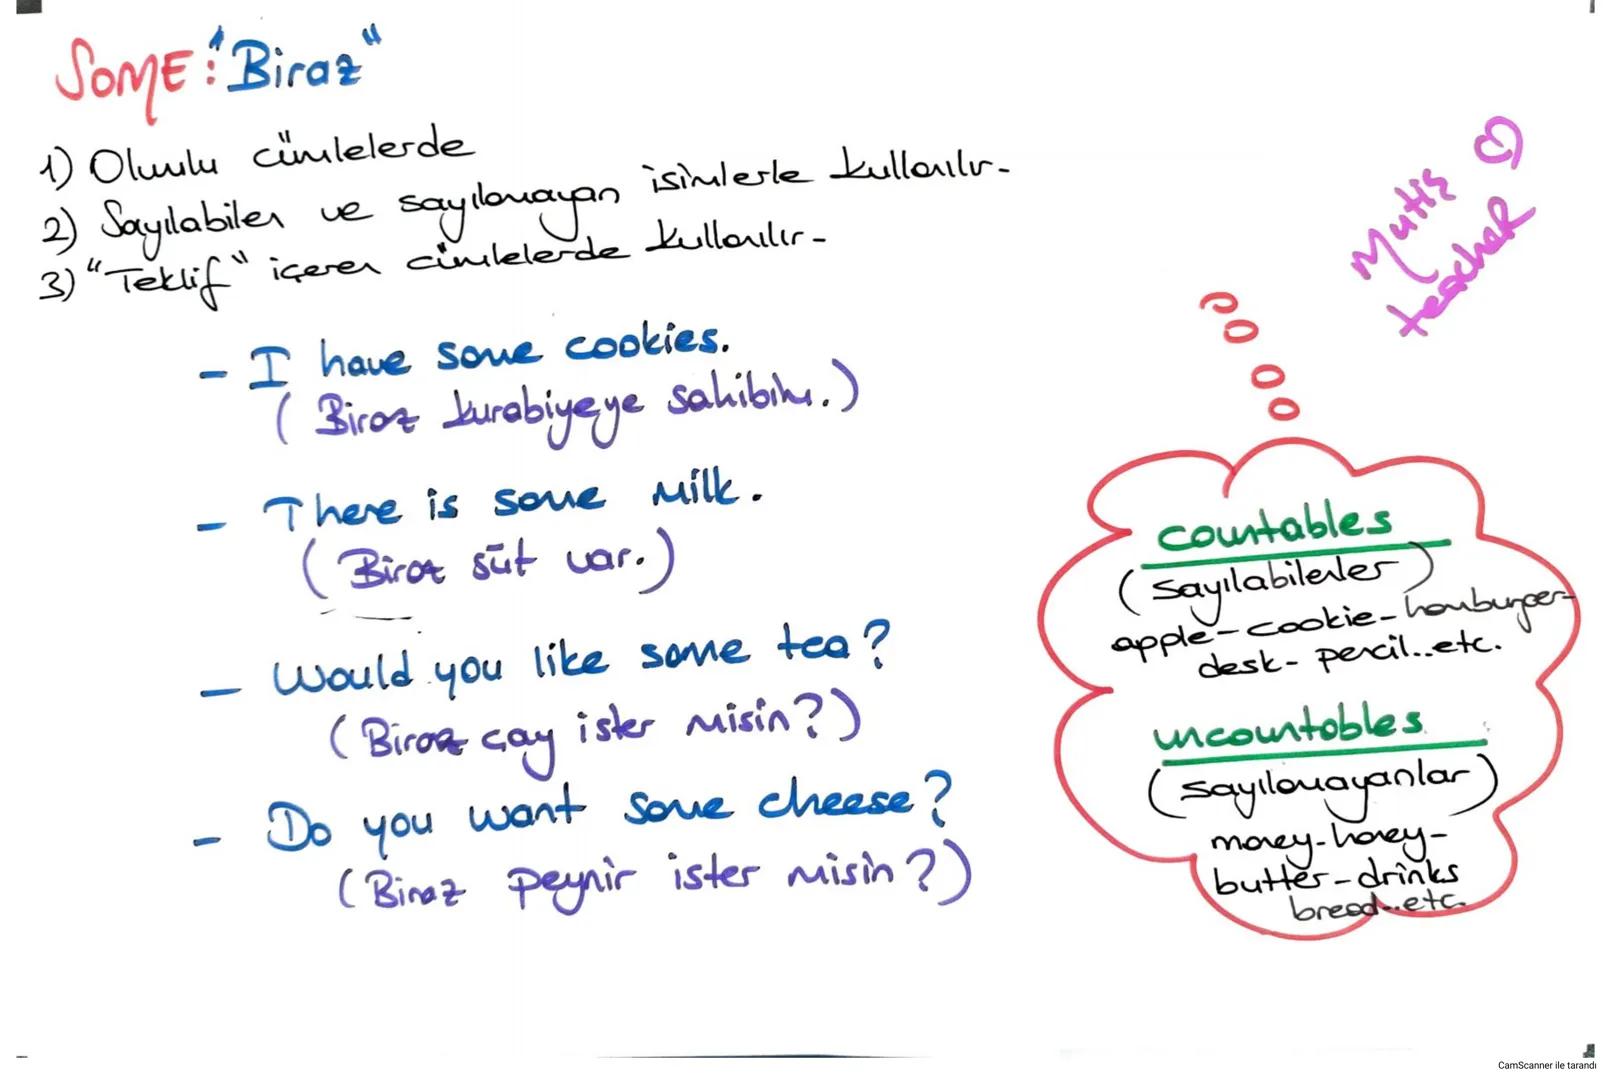 SOME: "Biraz"
1) Olumlu cümlelerde
2) Sayılabilen ve sayılamayan isimlerle kullanılır.
3) "Teklif" içeren cümlelerde kullanılır.
- I have some cookies.
( Biraz kurabiyeye sahibim.)
- There is some milk.
( Biraz süt var.)
- Would you like some tea?
( Biraz çay ister misin?)
- Do you want some cheese?
( Biraz peynir ister misin?)
Mutiş
teacher
countables
( sayılabilenler )
apple - cookie - hamburger -
desk - pencil..etc.
uncountables
( sayılamayanlar )
money - honey -
butter - drinks
bread..etc.
CamScanner ile tarandı